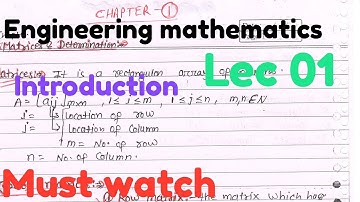 CHAPTER-①
Engineering mathematics
Matrices & Determination
Lec 01
Matrices:- It is a rectangular array of
Introduction
A = [aij]m×n, 1 ≤ i ≤ m, 1 ≤ j ≤ n, m,n EN
i = Location of row
j = Location of column
m = No. of row
n = No. of Column.
Must watch
Row matrix:- the matrix which has